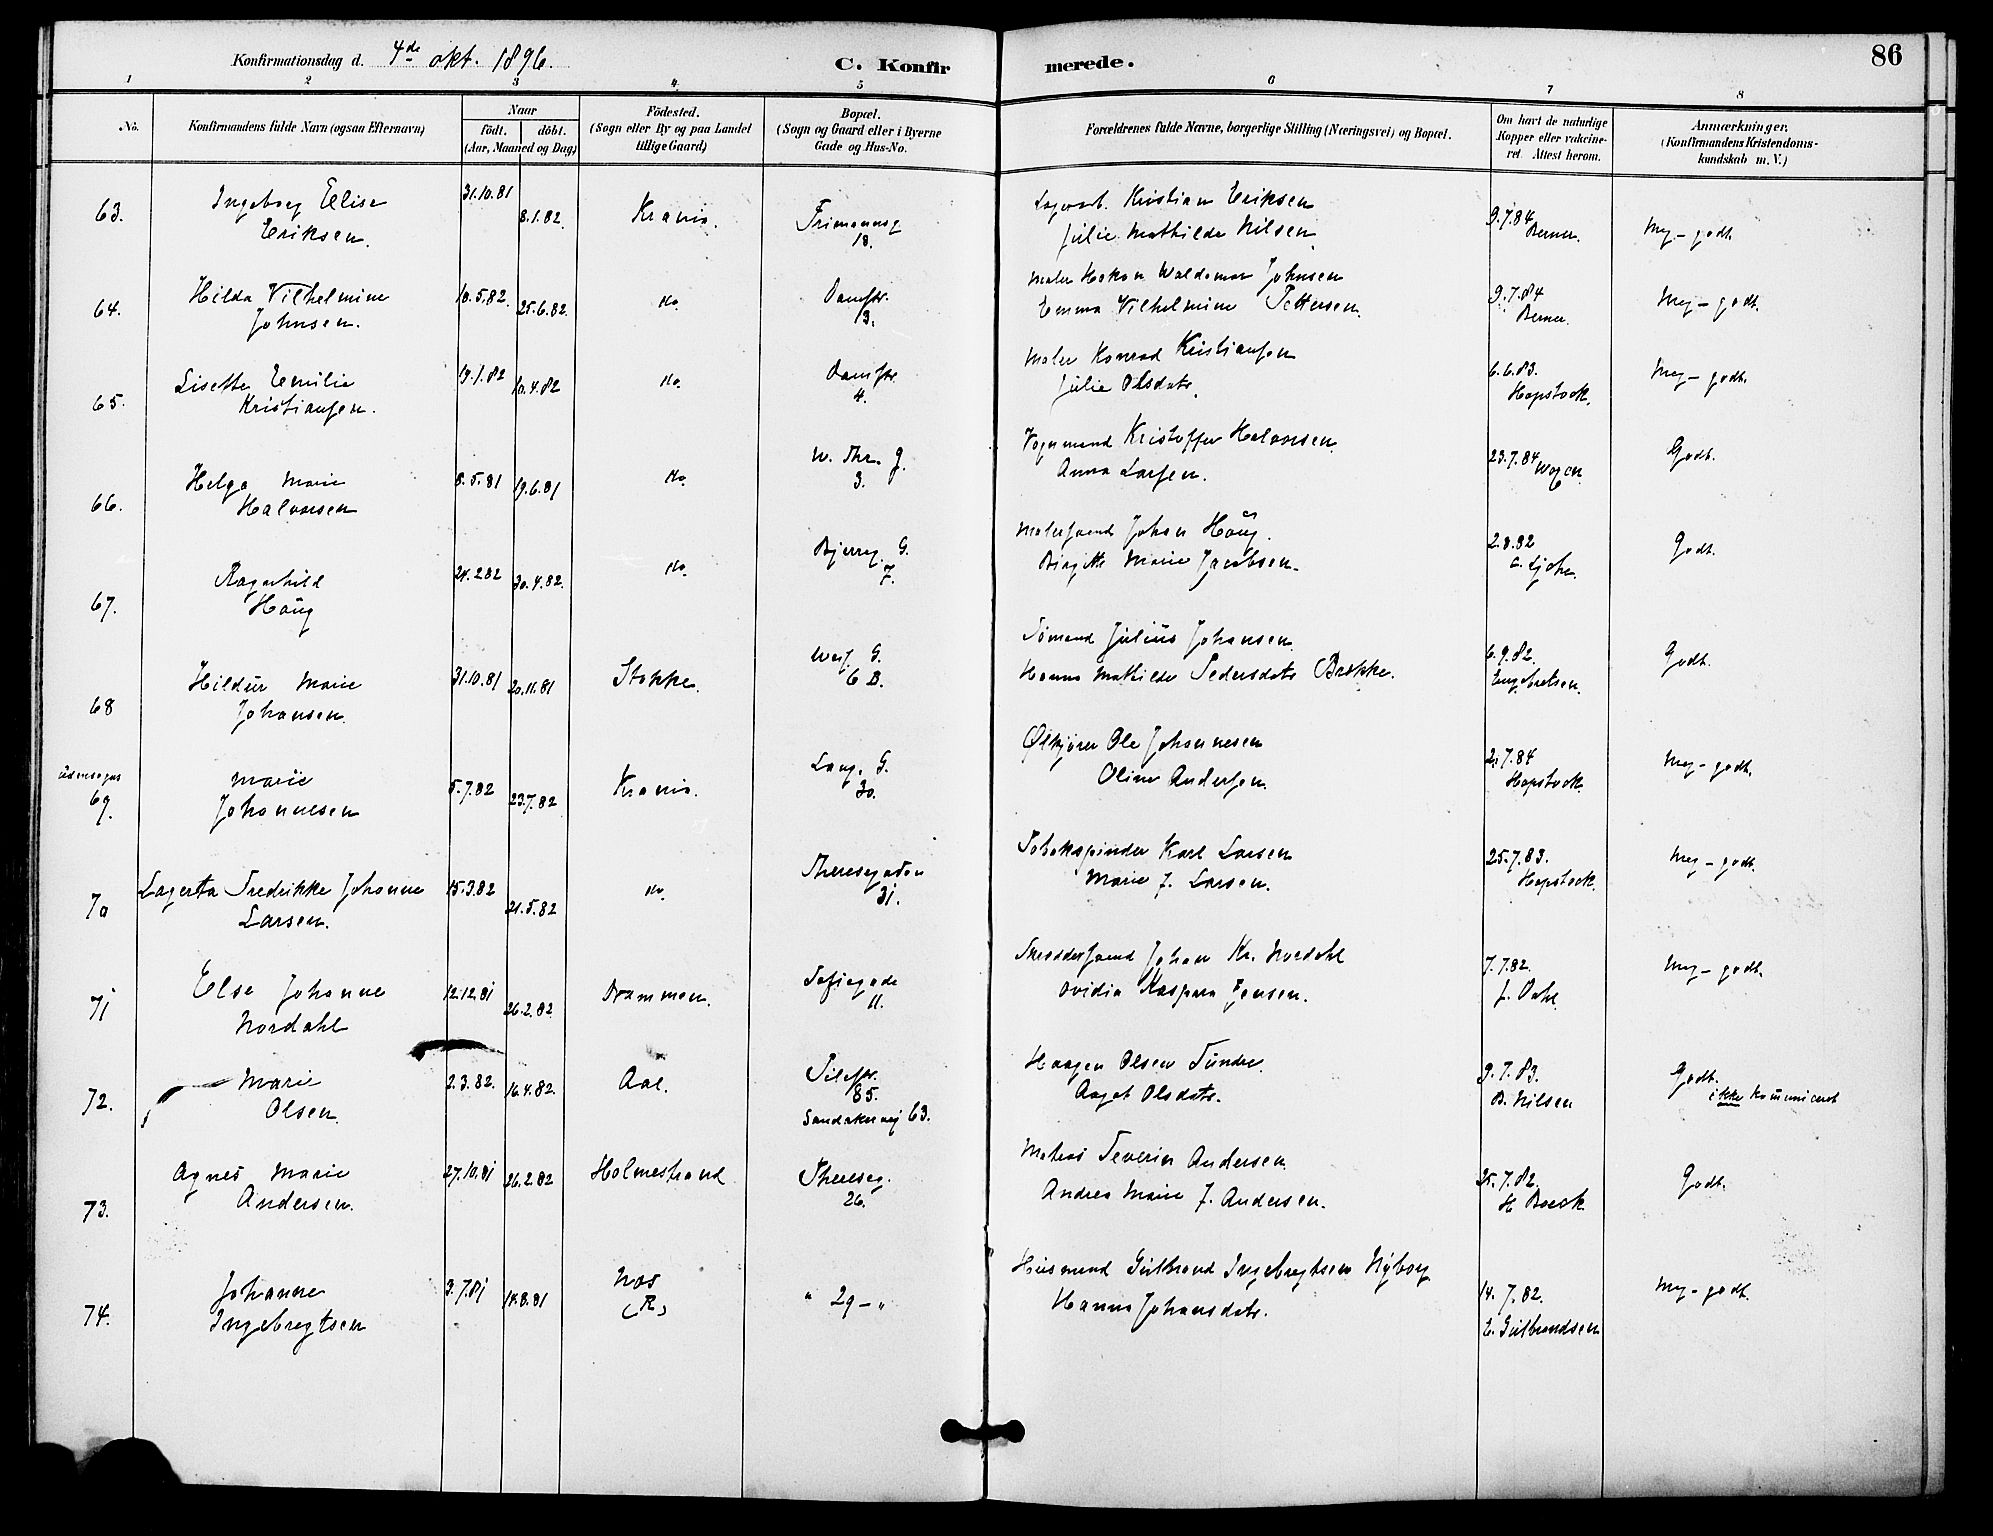 Konfirmationsdag d. 4de okt. 1896.
C. Konfirmerede.
86
1 2 3 4 5 6 7 8
No.
Konfirmandens fulde Navn (ogsaa Efternavn)
Naar
födt. döbt.
(Aar, Maaned og Dag)
Födested.
(Sogn eller By og paa Landet
tillige Gaard)
Bopæl.
(Sogn og Gaard eller i Byerne
Gade og Hus-No.
Forældrenes fulde Navne, borgerlige Stilling (Næringsvei) og Bopæl.
Om havt de naturlige
Kopper eller vakcine-
ret. Attest herom.
Anmærkninger.
(Konfirmandens Kristendoms-
kundskab m. V.)
63. Ingeborg Elise
Eriksen.
31.10.81
8.1.82.
Krania.
Frimannsg
18.
Kristian Eriksen
Julie Mathilde Nilsen.
9.7.84
Berner.
Meg – godt.
64. Hilda Vilhelmine
Johnsen.
10.5.82.
25.6.82.
do.
Damstr.
13.
Maler Hakon Waldemar Johnsen
Emma Vilhelmine Pettersen.
9.7.84
Berner.
Meg – godt.
65. Lisette Emilie
Kristiansen.
19.1.82
10.4.82
do.
Damstr.
4.
Maler Konrad Kristiansen
Julie Olsdatr.
6.6.83.
Hopstock.
Meg – godt.
66. Helga Marie
Halvorsen
8.5.81
19.6.81
do.
W. Thr. G.
3.
Vognmand Kristoffer Halvorsen.
Anna Larsen.
23.7.84
Godt.
67. Ragnhild
Haüg
24.2.82
30.4.82.
do.
Bjerreg. G.
7.
Malersvend Johan Haüg.
Birgitte Marie Jacobsen.
2.8.82
Godt.
68 Hildür Marie
Johansen.
31.10.81
20.11.81
Stokke.
Wesf. G.
6 B.
Sømand Julius Johansen.
Hanna Mathilde Pedersdatr Brække.
6.9.82.
Engebretsen.
Godt.
udensogns
69. Marie
Johannesen
5.7.82
23.7.82
Krania.
Lang. G.
30.
Ølkjører Ole Johannesen
Oline Andersen.
2.7.84
Hopstock.
Meg – godt.
70 Lagerta Fredrikke Johanne
Larsen.
15.3.82
21.5.82
do.
Theresegaden
31.
Tobakspinder Karl Larsen
Marie J. Larsen.
25.7.83.
Hopstock.
Meg – godt.
71 Else Johanne
Nordahl
12.12.81
26.2.82
Drammen.
Sofiegade
11.
Skræddersvend Johan Kr. Nordahl
Ovidia Kaspara Jensen.
7.7.82.
J. Dahl
Meg – godt.
72. Marie
Olsen.
2.3.82.
16.4.82.
Aal.
Pilestr.
85.
Sandakervej 63.
Haagen Olsen Sündre.
Aagot Olsdatr.
9.7.83.
B. Nilsen
Godt.
ikke kommuniceret
73. Agnes Marie
Andersen.
27.10.81
26.2.82
Holmestrand
Thereseg.
26.
Matros Severin Andersen
Andrea Marie J. Andersen.
25.7.82.
H Boeck
Godt.
74. Johanne
Ingebregtsen
3.7.81
14.8.81
Næs
(R)
" 29 – "
Husmand Gulbrand Ingebregtsen Nyborg
Hanna Johansdatr.
14.7.82.
E. Gulbrandsen
Meg – godt.